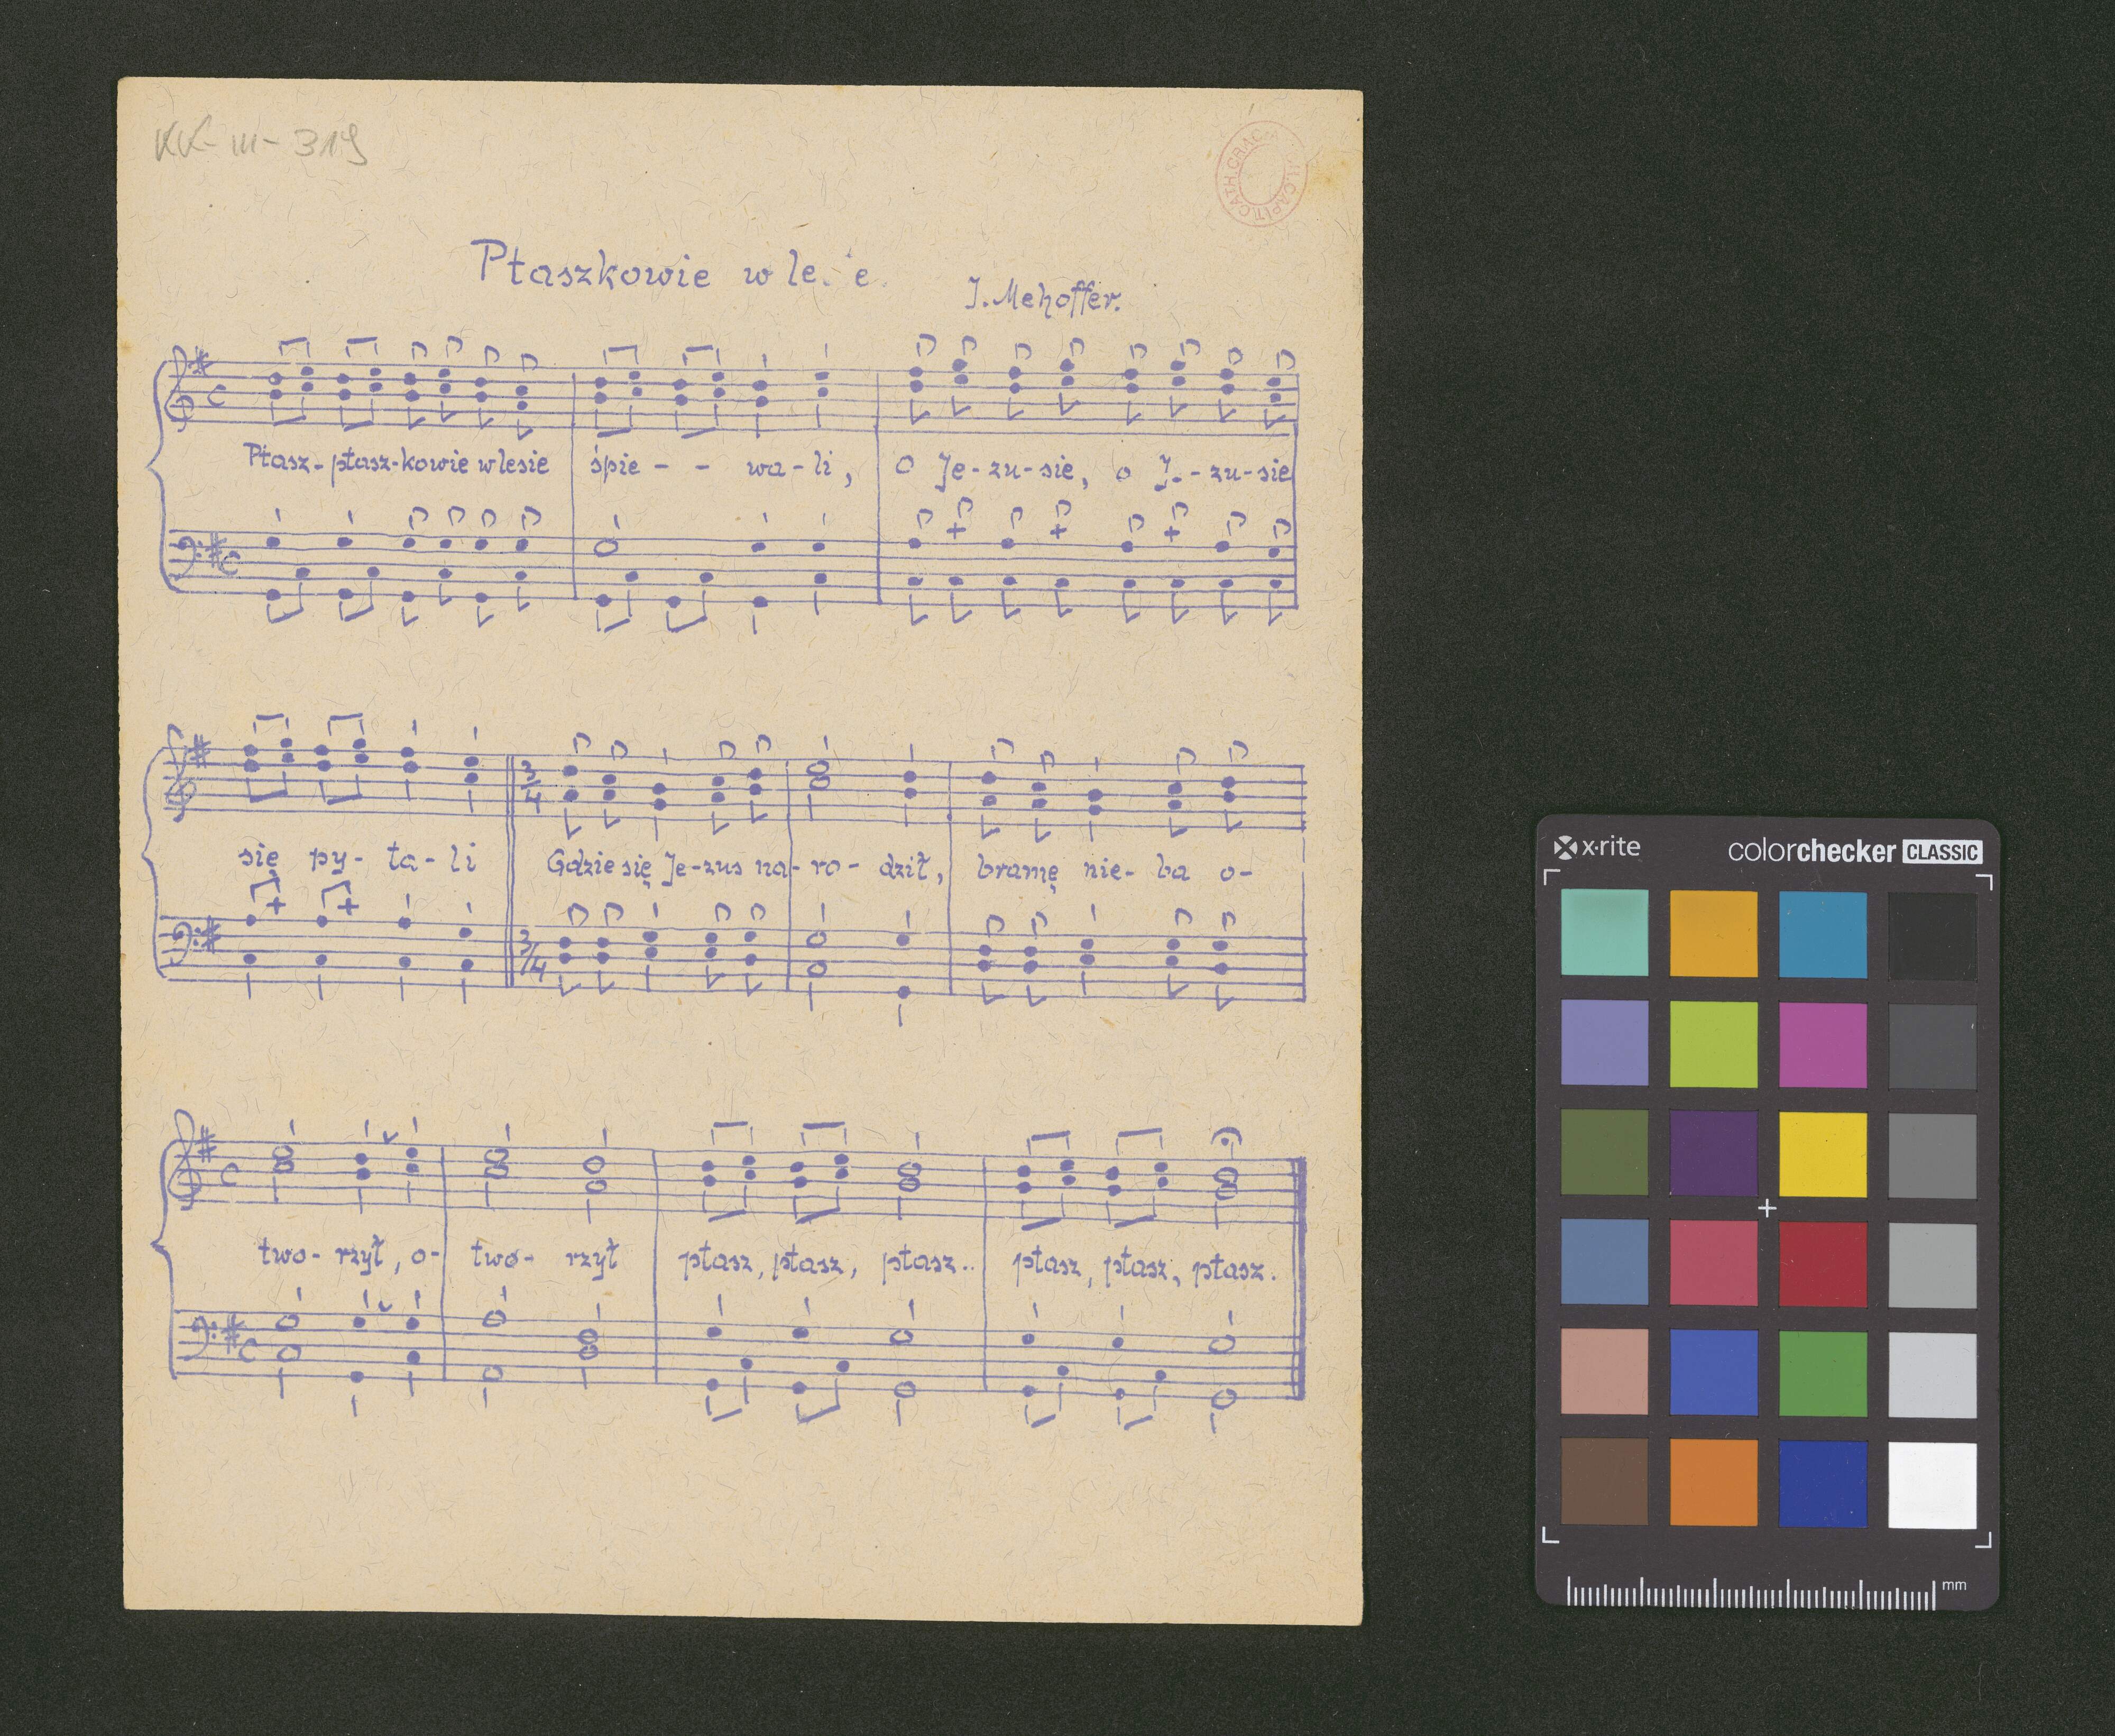 KK-III-319
Ptaszkowie w le. e.
J. Mehoffer.
Ptasz-ptasz-kowie w lesie śpie - - wa-li, o Je-zu-sie, o J.-zu-sie
się py-ta-li Gdzie się Je-zus na-ro-dził, bramę nie-ba o-
3/4
3/4
two-rzył, o-two-rzył ptasz, ptasz, ptasz.. ptasz, ptasz, ptasz.
x·rite colorchecker CLASSIC
mm